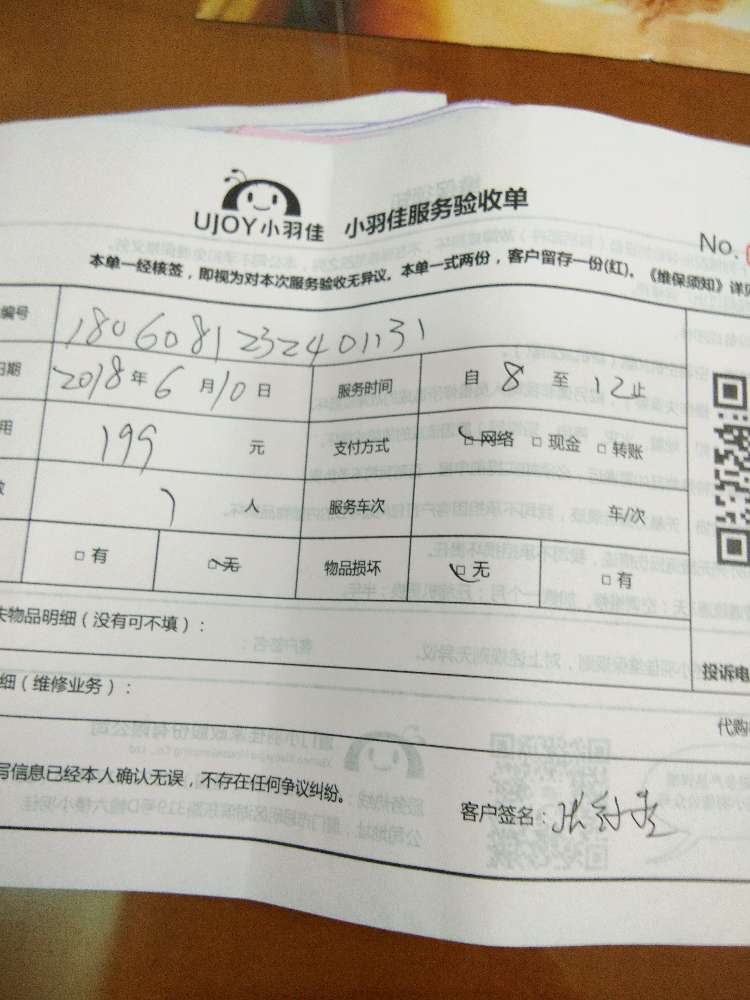 UJOY小羽佳 小羽佳服务验收单
No.
本单一经核签，即视为对本次服务验收无异议。本单一式两份，客户留存一份(红)。《维保须知》详见
编号 1806081232401131
日期 2018年6月10日 服务时间 自8至12止
用 199元 支付方式 □网络 □现金 □转账
数 1人 服务车次 车/次
□有 □无 物品损坏 □无 □有
失物品明细（没有可不填）：
投诉电
细（维修业务）：
代购
写信息已经本人确认无误，不存在任何争议纠纷。
客户签名：